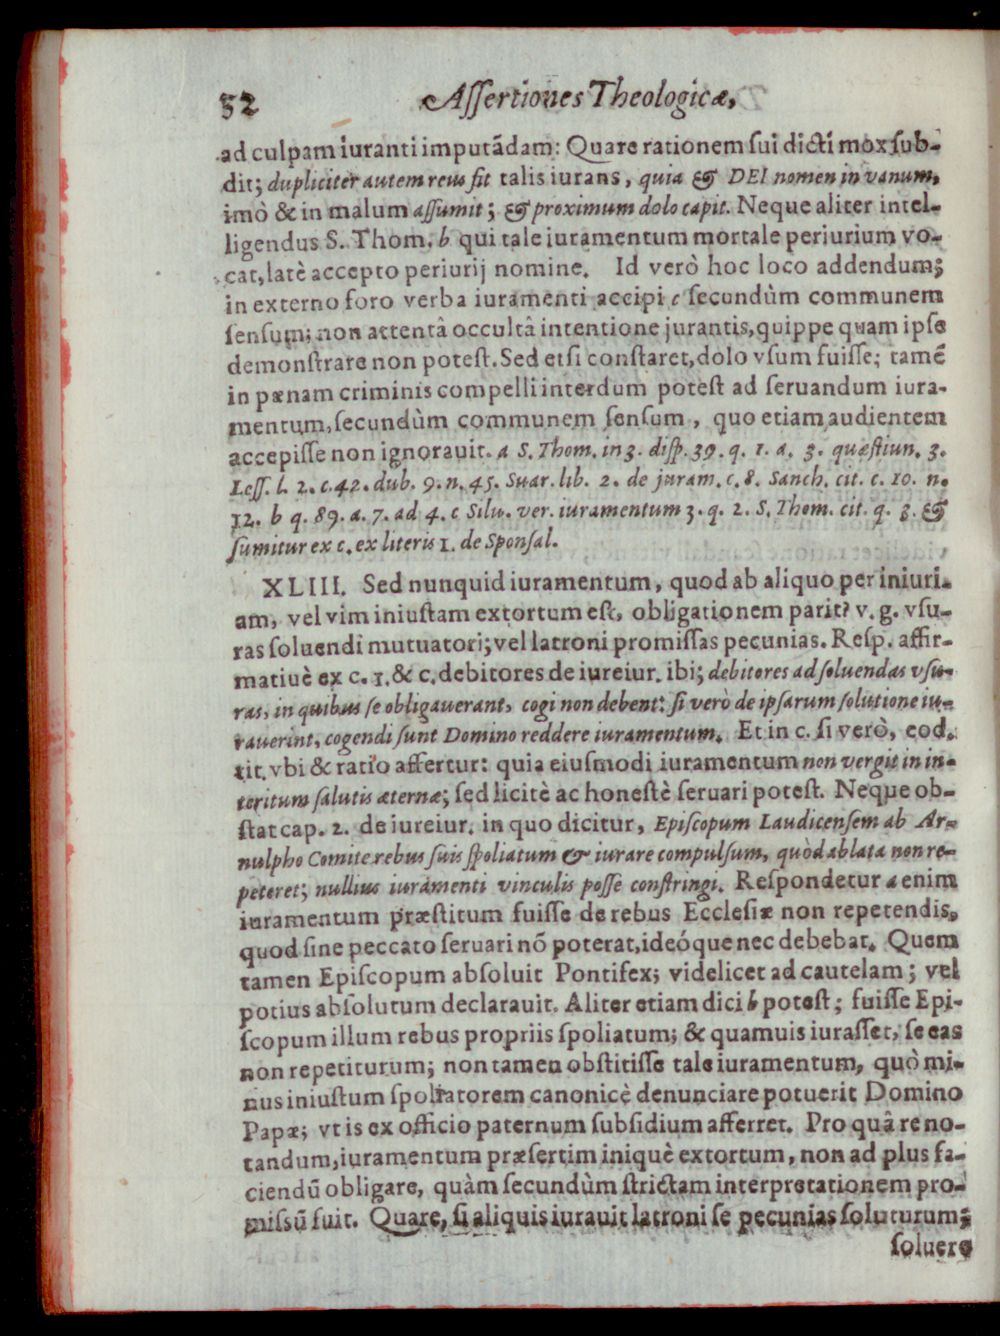 52 Aſſertiones Theologicæ,
ad culpam iuranti imputãdam: Quare rationem ſui dicti mox ſub-
dit; dupliciter autem reus fit talis iurans, quia & DEI nomen in vanum,
imò & in malum aſſumit; & proximum dolo capit. Neque aliter intel-
ligendus S. Thom. b qui tale iuramentum mortale periurium vo-
cat, latè accepto periurij nomine. Id verò hoc loco addendum;
in externo foro verba iuramenti accipi c ſecundùm communem
ſenſum; non attentâ occultâ intentione jurantis, quippe quam ipſe
demonſtrare non poteſt. Sed etſi conſtaret, dolo vſum fuiſſe; tamẽ
in pænam criminis compelli interdum poteſt ad ſeruandum iura-
mentum, ſecundùm communem ſenſum, quo etiam audientem
accepiſſe non ignorauit. a S. Thom. in 3. diſp. 39. q. 1. a. 3. quæſtiun. 3.
Leſſ. l. 2. c. 42. dub. 9. n. 45. Suar. lib. 2. de juram. c. 8. Sanch. cit. c. 10. n.
12. b q. 89. a. 7. ad 4. c Silu. ver. iuramentum 3. q. 2. S. Thom. cit. q. 3. &
ſumitur ex c. ex literis 1. de Sponſal.
XLIII. Sed nunquid iuramentum, quod ab aliquo per iniuri-
am, vel vim iniuſtam extortum eſt, obligationem parit? v. g. vſu-
ras ſoluendi mutuatori; vel latroni promiſſas pecunias. Reſp. affir-
matiuè ex c. 1. & c. debitores de iureiur. ibi; debitores ad ſoluendas vſu-
ras, in quibus ſe obligauerant, cogi non debent: ſi verò de ipſarum ſolutione iu-
rauerint, cogendi ſunt Domino reddere iuramentum. Et in c. ſi verò, eod.
tit. vbi & ratio affertur: quia eiuſmodi iuramentum non vergit in in-
teritum ſalutis æternæ; ſed licitè ac honeſtè ſeruari poteſt. Neque ob-
ſtat cap. 2. de iureiur. in quo dicitur, Epiſcopum Laudicenſem ab Ar-
nulpho Comite rebus ſuis ſpoliatum & iurare compulſum, quòd ablata non re-
peteret; nullius iuramenti vinculis poſſe conſtringi. Reſpondetur a enim
iuramentum præſtitum fuiſſe de rebus Eccleſiæ non repetendis,
quod ſine peccato ſeruari nõ poterat, ideóque nec debebat. Quem
tamen Epiſcopum abſoluit Pontifex; videlicet ad cautelam; vel
potius abſolutum declarauit. Aliter etiam dici b poteſt; fuiſſe Epi-
ſcopum illum rebus propriis ſpoliatum; & quamuis iuraſſet, ſe eas
non repetiturum; non tamen obſtitiſſe tale iuramentum, quò mi-
nus iniuſtum ſpoliatorem canonicè denunciare potuerit Domino
Papæ; vt is ex officio paternum ſubſidium afferret. Pro quâ re no-
tandum, iuramentum præſertim iniquè extortum, non ad plus fa-
ciendũ obligare, quàm ſecundùm ſtrictam interpretationem pro-
miſsũ fuit. Quare, ſi aliquis iurauit latroni ſe pecunias ſoluturum;
ſoluere